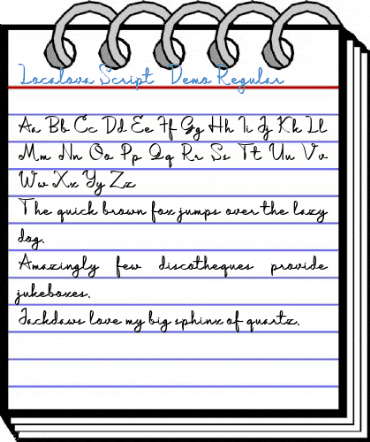 Localova Script Demo Regular
Aa Bb Cc Dd Ee Ff Gg Hh Ii Jj Kk Ll
Mm Nn Oo Pp Qq Rr Ss Tt Uu Vv
Ww Xx Yy Zz
The quick brown fox jumps over the lazy
dog.
Amazingly few discotheques provide
jukeboxes.
Jackdaws love my big sphinx of quartz.